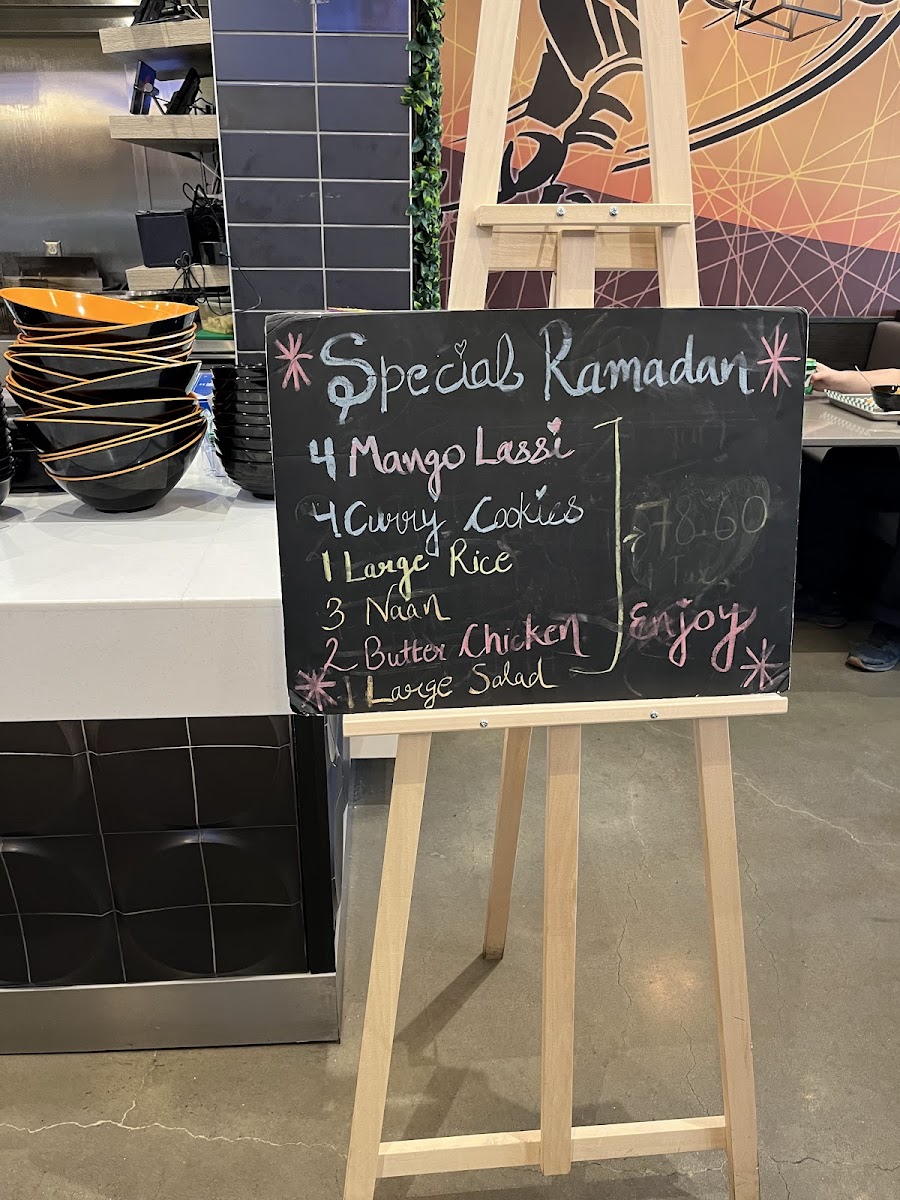 Special Ramadan
4 Mango Lassi
4 Curry Cookies
1 Large Rice
3 Naan
2 Butter Chicken
1 Large Salad
78.60
+ Tax
Enjoy